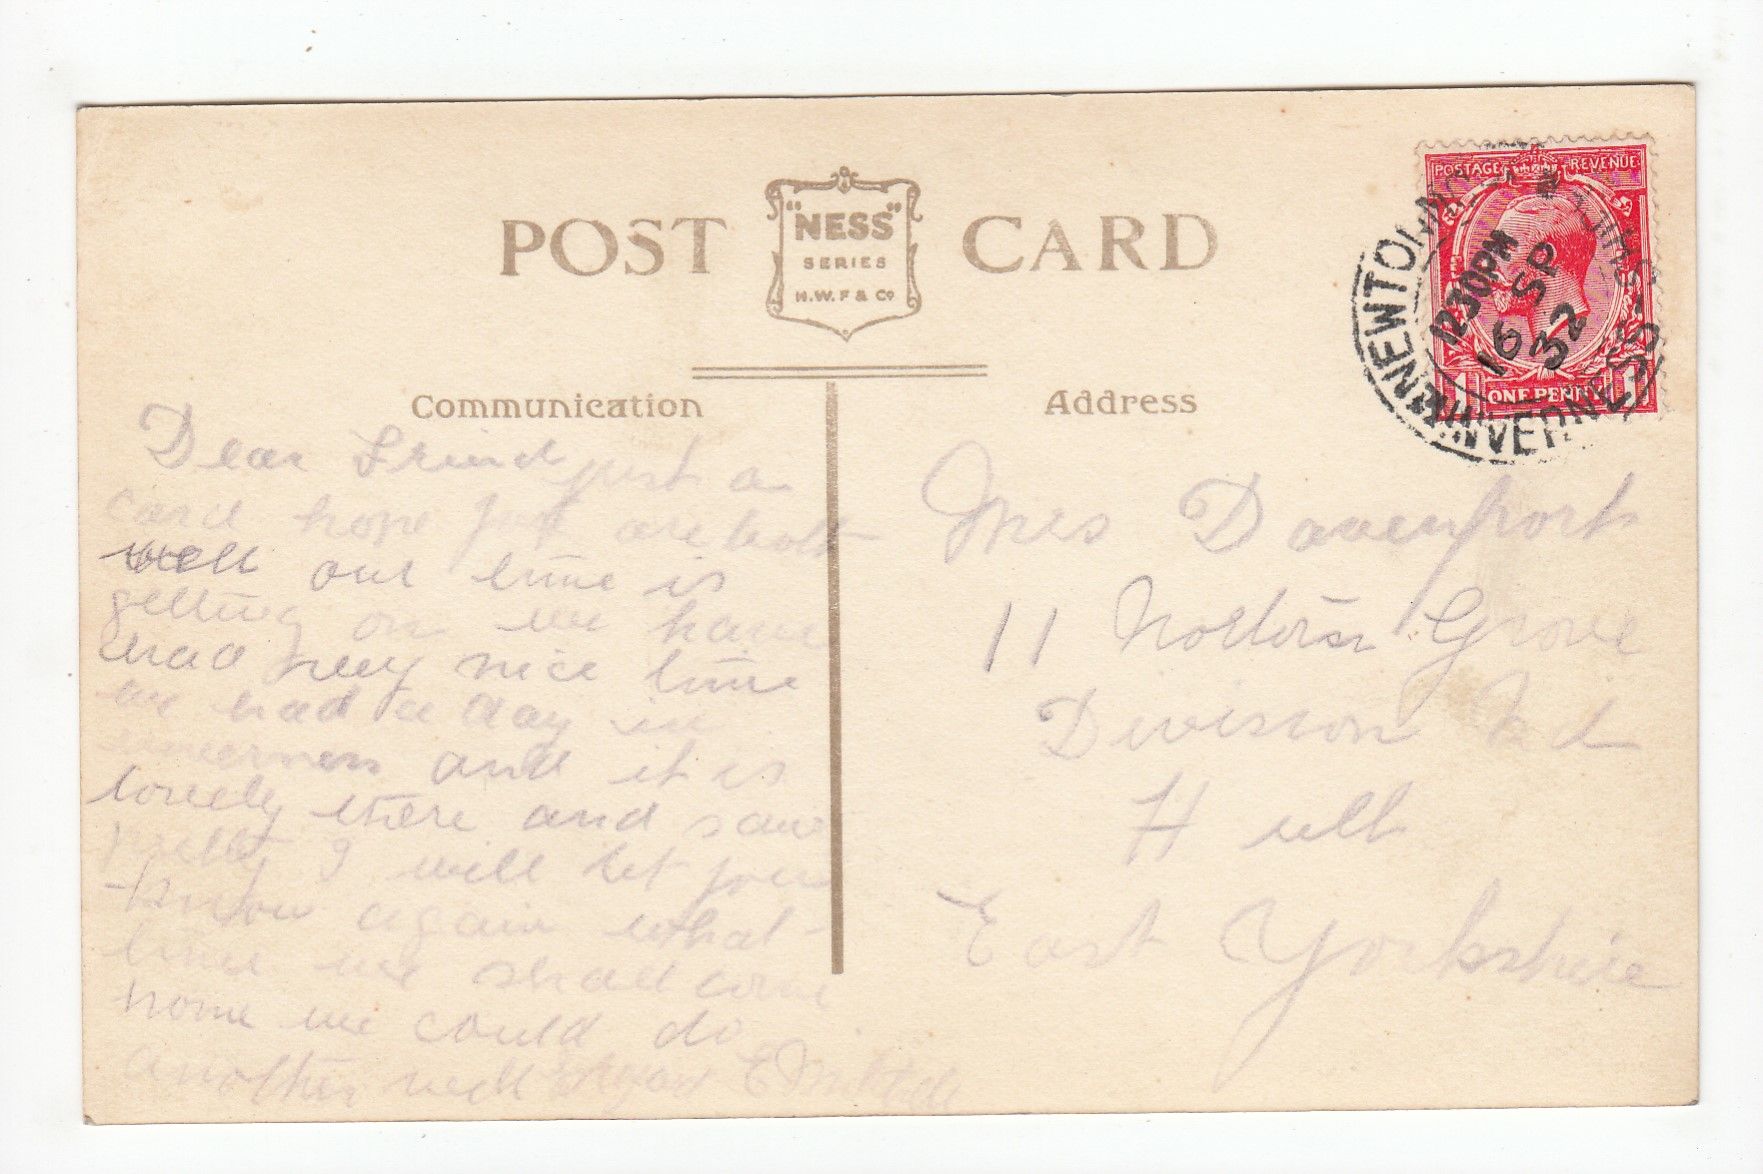 POST CARD
"NESS"
SERIES
H.W.F & Co
POSTAGE REVENUE
NEWTONMORE
INVERNESS-SHIRE
12 30PM
16 SP
32
1 ONE PENNY 1
Communication
Address
Dear Friend just a
card hope you are both
well our time is
getting on we have
had very nice time
we had a day in
inverness and it is
lovely there and
pretty I will let you
know again what
time we shall come
home we could do
another week E Mitchell
Mrs Davenport
11 Grove
Division Rd
Hull
East Yorkshire